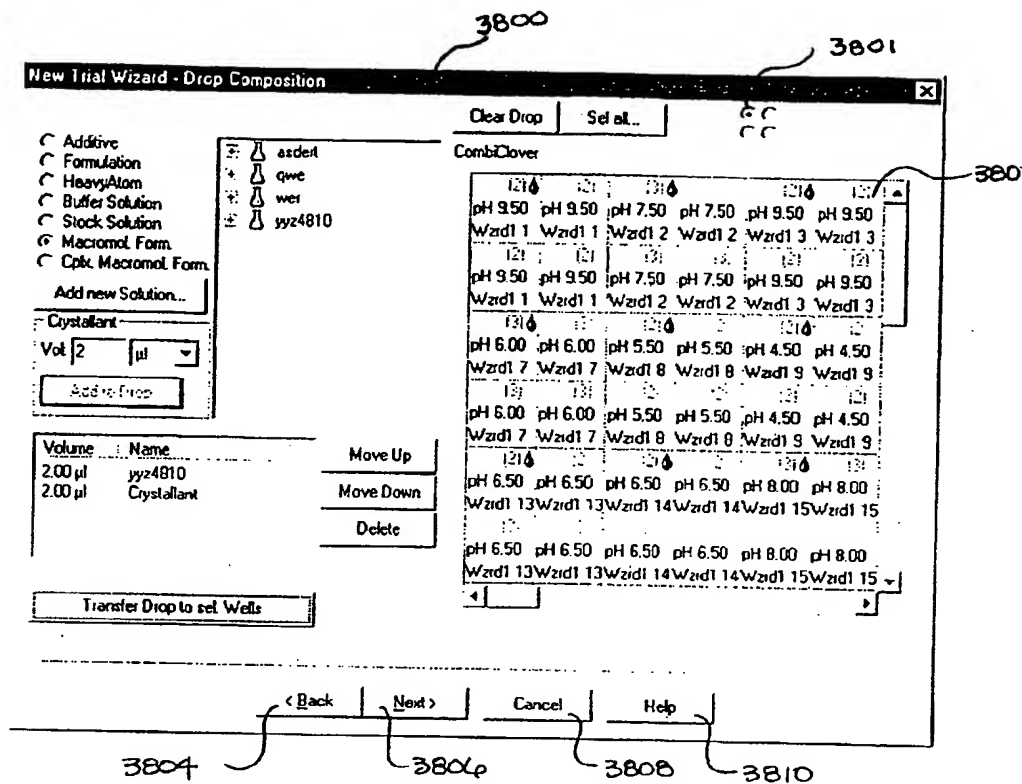 3800
3801
New Trial Wizard - Drop Composition
Clear Drop Sel all...
Additive
Formulation
HeavyAtom
Buffer Solution
Stock Solution
Macromol. Form.
Cplx. Macromol. Form.
Add new Solution...
asdert
qwe
wer
yyz4810
Crystallant
Vol: 2 µl
Add to Drop
Volume Name
2.00 µl yyz4810
2.00 µl Crystallant
Move Up
Move Down
Delete
Transfer Drop to sel. Wells
CombiClover
380
pH 9.50 pH 9.50 pH 7.50 pH 7.50 pH 9.50 pH 9.50
Wzrd1 1 Wzrd1 1 Wzrd1 2 Wzrd1 2 Wzrd1 3 Wzrd1 3
pH 9.50 pH 9.50 pH 7.50 pH 7.50 pH 9.50 pH 9.50
Wzrd1 1 Wzrd1 1 Wzrd1 2 Wzrd1 2 Wzrd1 3 Wzrd1 3
pH 6.00 pH 6.00 pH 5.50 pH 5.50 pH 4.50 pH 4.50
Wzrd1 7 Wzrd1 7 Wzrd1 8 Wzrd1 8 Wzrd1 9 Wzrd1 9
pH 6.00 pH 6.00 pH 5.50 pH 5.50 pH 4.50 pH 4.50
Wzrd1 7 Wzrd1 7 Wzrd1 8 Wzrd1 8 Wzrd1 9 Wzrd1 9
pH 6.50 pH 6.50 pH 6.50 pH 6.50 pH 8.00 pH 8.00
Wzrd1 13 Wzrd1 13 Wzrd1 14 Wzrd1 14 Wzrd1 15 Wzrd1 15
pH 6.50 pH 6.50 pH 6.50 pH 6.50 pH 8.00 pH 8.00
Wzrd1 13 Wzrd1 13 Wzrd1 14 Wzrd1 14 Wzrd1 15 Wzrd1 15
< Back Next > Cancel Help
3804 3806 3808 3810